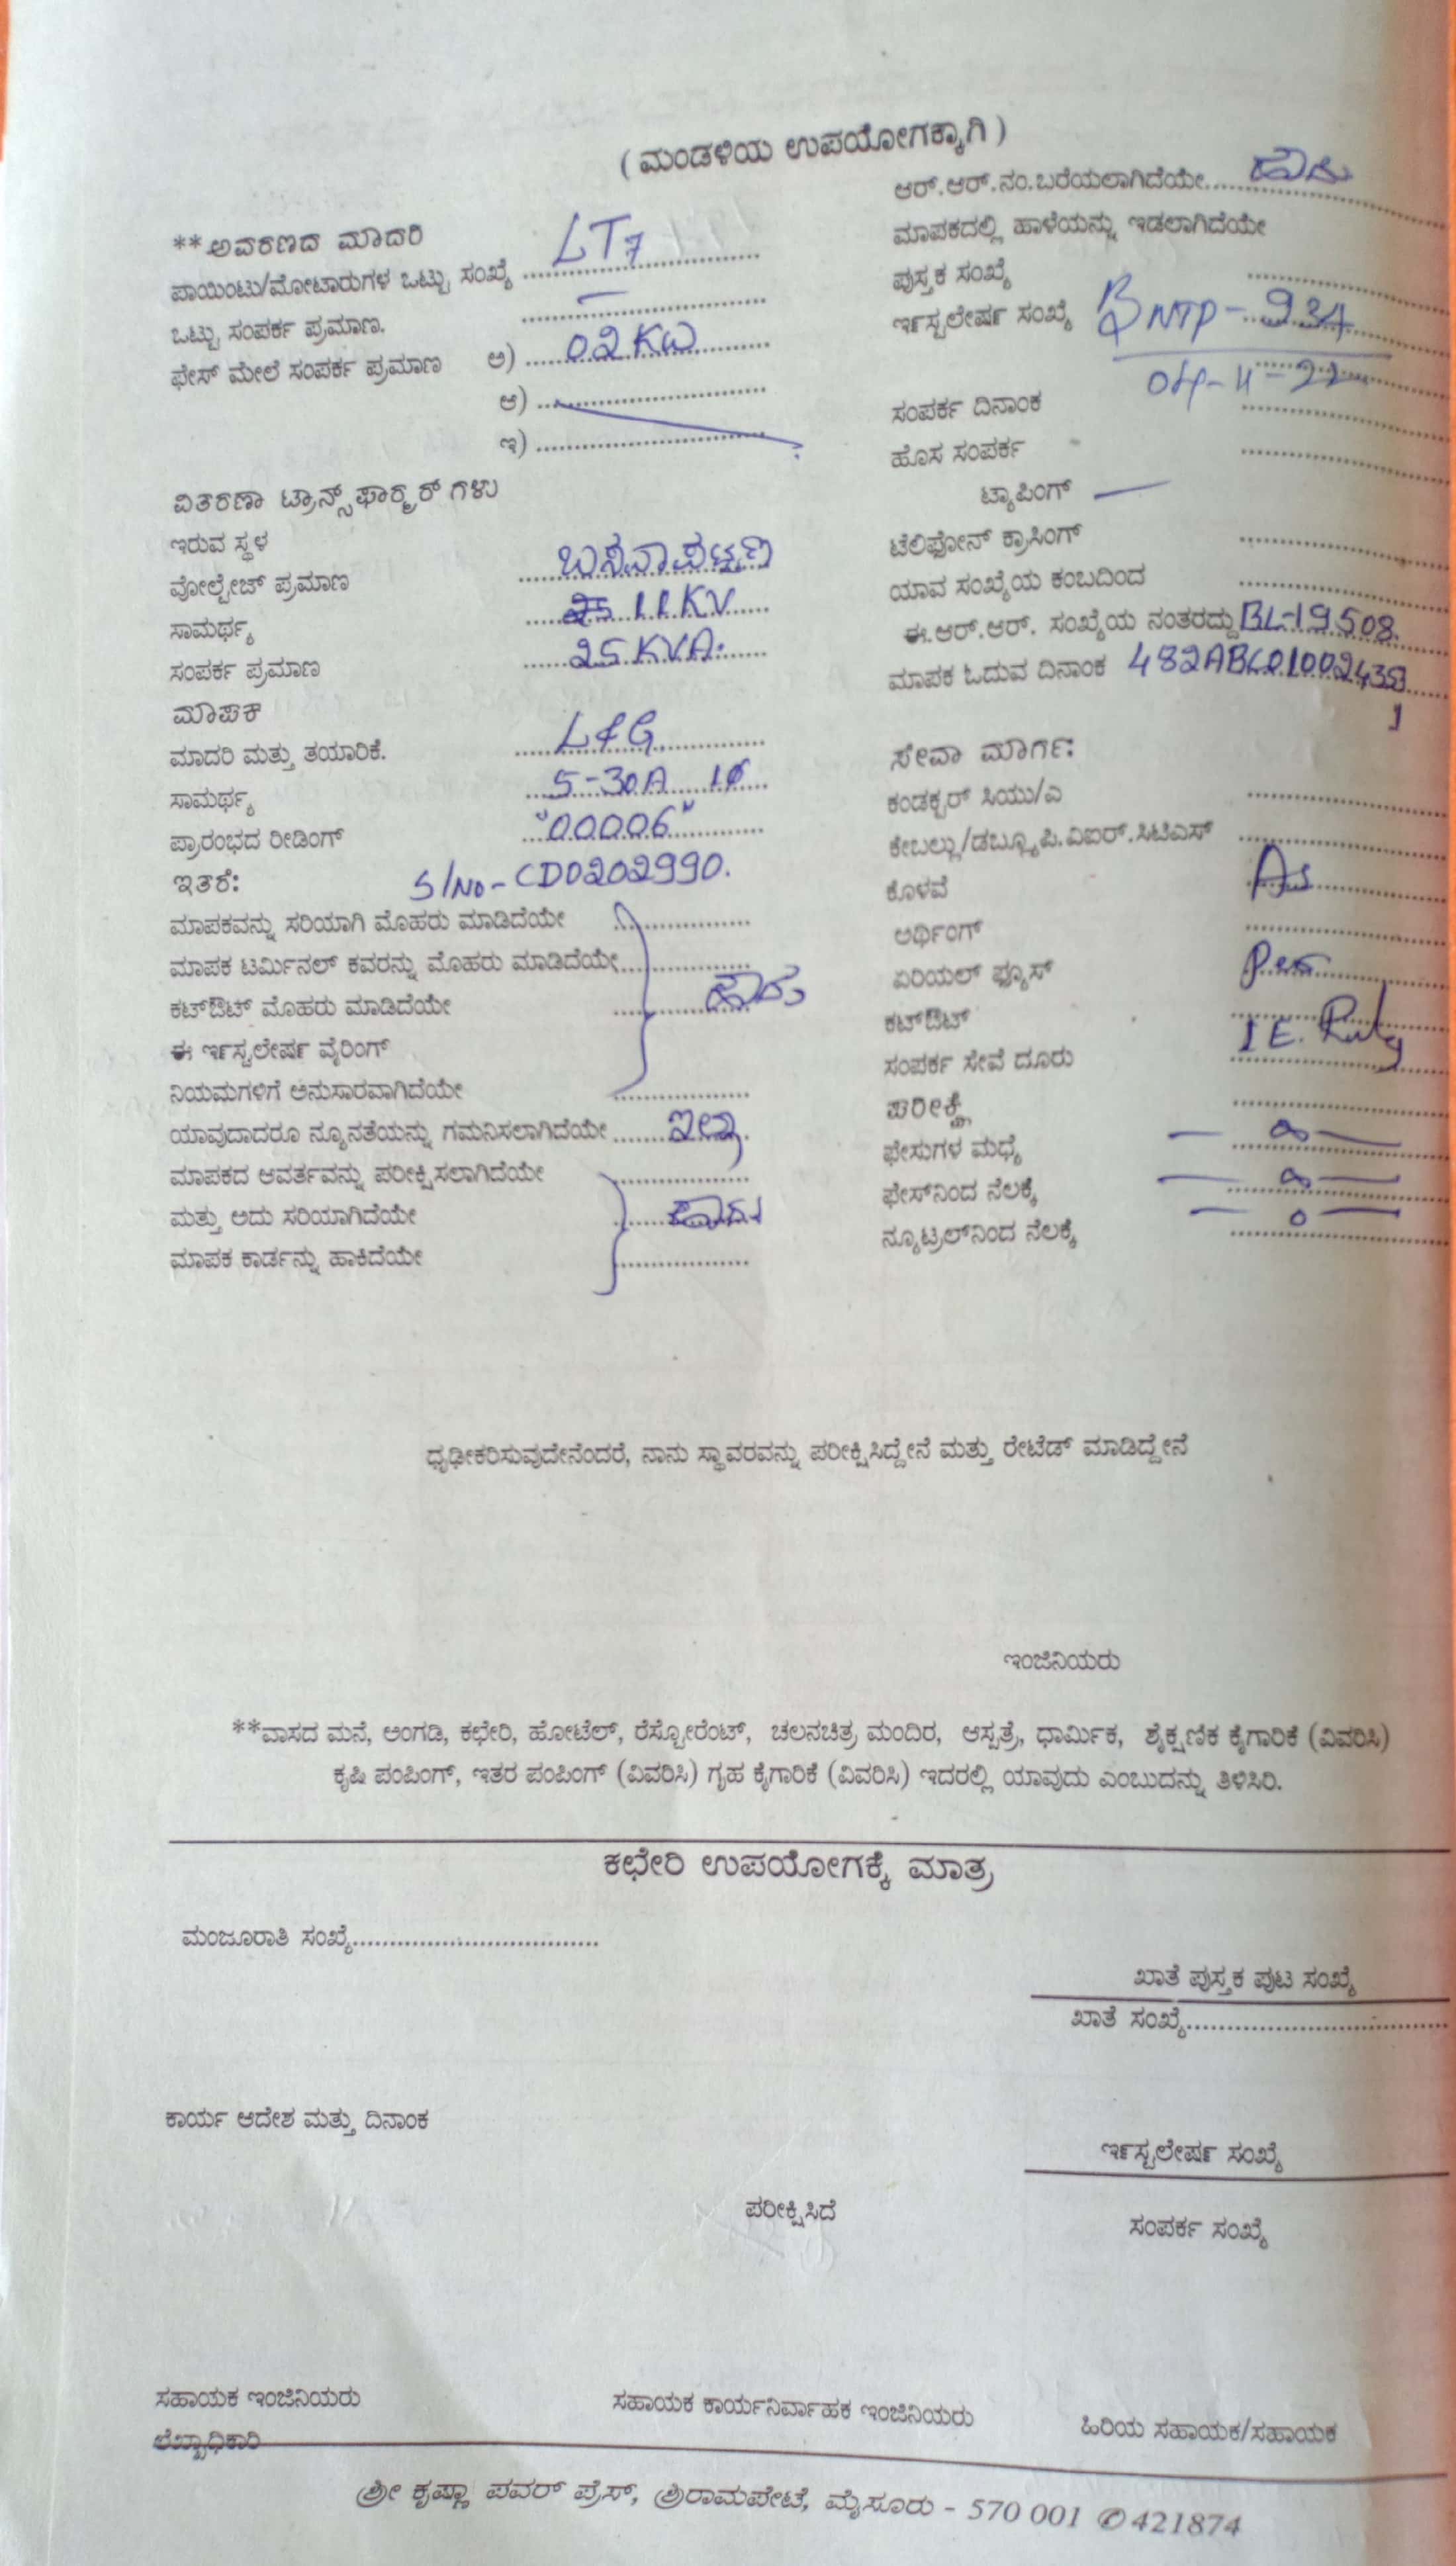 ( ಮಂಡಳಿಯ ಉಪಯೋಗಕ್ಕಾಗಿ )
**ಅವರಣದ ಮಾದರಿ
ಪಾಯಿಂಟು/ಮೋಟಾರುಗಳ ಒಟ್ಟು ಸಂಖ್ಯೆ ........ LT7
ಒಟ್ಟು ಸಂಪರ್ಕ ಪ್ರಮಾಣ. ........ —
ಫೇಸ್ ಮೇಲೆ ಸಂಪರ್ಕ ಪ್ರಮಾಣ ಅ) ........ 02 KW
ಆ) ........
ಇ) ........
ವಿತರಣಾ ಟ್ರಾನ್ಸ್‌ಫಾರ್ಮರ್ ಗಳು
ಇರುವ ಸ್ಥಳ
ವೋಲ್ಟೇಜ್ ಪ್ರಮಾಣ ........ ಬಸವಾಪಟ್ಟಣ
ಸಾಮರ್ಥ್ಯ ........ 11 KV
ಸಂಪರ್ಕ ಪ್ರಮಾಣ ........ 25 KVA.
ಮಾಪಕ
ಮಾದರಿ ಮತ್ತು ತಯಾರಿಕೆ. ........ L&G
ಸಾಮರ್ಥ್ಯ ........ 5-30A 1Ø
ಪ್ರಾರಂಭದ ರೀಡಿಂಗ್ ........ "00006"
ಇತರೆ: S/No - CD0202990.
ಮಾಪಕವನ್ನು ಸರಿಯಾಗಿ ಮೊಹರು ಮಾಡಿದೆಯೇ ........
ಮಾಪಕ ಟರ್ಮಿನಲ್ ಕವರನ್ನು ಮೊಹರು ಮಾಡಿದೆಯೇ ........
ಕಟ್‌ಔಟ್ ಮೊಹರು ಮಾಡಿದೆಯೇ ........ ಹೌದು
ಈ ಇನ್‍ಸ್ಟಲೇಷನ್ ವೈರಿಂಗ್
ನಿಯಮಗಳಿಗೆ ಅನುಸಾರವಾಗಿದೆಯೇ ........
ಯಾವುದಾದರೂ ನ್ಯೂನತೆಯನ್ನು ಗಮನಿಸಲಾಗಿದೆಯೇ ........ ಇಲ್ಲ
ಮಾಪಕದ ಆವರ್ತವನ್ನು ಪರೀಕ್ಷಿಸಲಾಗಿದೆಯೇ ........
ಮತ್ತು ಅದು ಸರಿಯಾಗಿದೆಯೇ ........ ಹೌದು
ಮಾಪಕ ಕಾರ್ಡನ್ನು ಹಾಕಿದೆಯೇ ........
ಆರ್.ಆರ್.ನಂ.ಬರೆಯಲಾಗಿದೆಯೇ ........ ಹೌದು
ಮಾಪಕದಲ್ಲಿ ಹಾಳೆಯನ್ನು ಇಡಲಾಗಿದೆಯೇ
ಪುಸ್ತಕ ಸಂಖ್ಯೆ ........
ಇನ್‍ಸ್ಟಲೇಷನ್ ಸಂಖ್ಯೆ BNTP-
04-11-22
ಸಂಪರ್ಕ ದಿನಾಂಕ ........
ಹೊಸ ಸಂಪರ್ಕ ........
ಟ್ಯಾಪಿಂಗ್ —
ಟೆಲಿಫೋನ್ ಕ್ರಾಸಿಂಗ್ ........
ಯಾವ ಸಂಖ್ಯೆಯ ಕಂಬದಿಂದ ........
ಈ.ಆರ್.ಆರ್. ಸಂಖ್ಯೆಯ ನಂತರದ್ದು BL-19508.
ಮಾಪಕ ಓದುವ ದಿನಾಂಕ
ಸೇವಾ ಮಾರ್ಗ:
ಕಂಡಕ್ಟರ್ ಸಿಯು/ಎ ........
ಕೇಬಲ್ಲು/ಡಬ್ಲ್ಯೂಪಿ.ವಿಐರ್.ಸಿಟಿಎಸ್ ........
ಕೊಳವೆ ........ As
ಅರ್ಥಿಂಗ್ ........
ಏರಿಯಲ್ ಫ್ಯೂಸ್ ........ Per
ಕಟ್‌ಔಟ್ ........
ಸಂಪರ್ಕ ಸೇವೆ ದೂರು ........ I E.
ಪರೀಕ್ಷೆ ........
ಫೇಸುಗಳ ಮಧ್ಯೆ — ∞ —
ಫೇಸ್‌ನಿಂದ ನೆಲಕ್ಕೆ — ∞ —
ನ್ಯೂಟ್ರಲ್‌ನಿಂದ ನೆಲಕ್ಕೆ — 0 —
ಧೃಢೀಕರಿಸುವುದೇನೆಂದರೆ, ನಾನು ಸ್ಥಾವರವನ್ನು ಪರೀಕ್ಷಿಸಿದ್ದೇನೆ ಮತ್ತು ರೇಟೆಡ್ ಮಾಡಿದ್ದೇನೆ
ಇಂಜಿನಿಯರು
**ವಾಸದ ಮನೆ, ಅಂಗಡಿ, ಕಛೇರಿ, ಹೋಟೆಲ್, ರೆಸ್ಟೋರೆಂಟ್, ಚಲನಚಿತ್ರ ಮಂದಿರ, ಆಸ್ಪತ್ರೆ, ಧಾರ್ಮಿಕ, ಶೈಕ್ಷಣಿಕ ಕೈಗಾರಿಕೆ (ವಿವರಿಸಿ)
ಕೃಷಿ ಪಂಪಿಂಗ್, ಇತರ ಪಂಪಿಂಗ್ (ವಿವರಿಸಿ) ಗೃಹ ಕೈಗಾರಿಕೆ (ವಿವರಿಸಿ) ಇದರಲ್ಲಿ ಯಾವುದು ಎಂಬುದನ್ನು ತಿಳಿಸಿರಿ.
ಕಛೇರಿ ಉಪಯೋಗಕ್ಕೆ ಮಾತ್ರ
ಮಂಜೂರಾತಿ ಸಂಖ್ಯೆ ........
ಖಾತೆ ಪುಸ್ತಕ ಪುಟ ಸಂಖ್ಯೆ
ಖಾತೆ ಸಂಖ್ಯೆ ........
ಕಾರ್ಯ ಆದೇಶ ಮತ್ತು ದಿನಾಂಕ
ಇನ್‍ಸ್ಟಲೇಷನ್ ಸಂಖ್ಯೆ
ಪರೀಕ್ಷಿಸಿದೆ
ಸಂಪರ್ಕ ಸಂಖ್ಯೆ
ಸಹಾಯಕ ಇಂಜಿನಿಯರು
ಸಹಾಯಕ ಕಾರ್ಯನಿರ್ವಾಹಕ ಇಂಜಿನಿಯರು
ಹಿರಿಯ ಸಹಾಯಕ/ಸಹಾಯಕ
ಲೆಖ್ಖಾಧಿಕಾರಿ
ಶ್ರೀ ಕೃಷ್ಣಾ ಪವರ್ ಪ್ರೆಸ್, ಶ್ರೀರಾಮಪೇಟೆ, ಮೈಸೂರು - 570 001 ✆ 421874